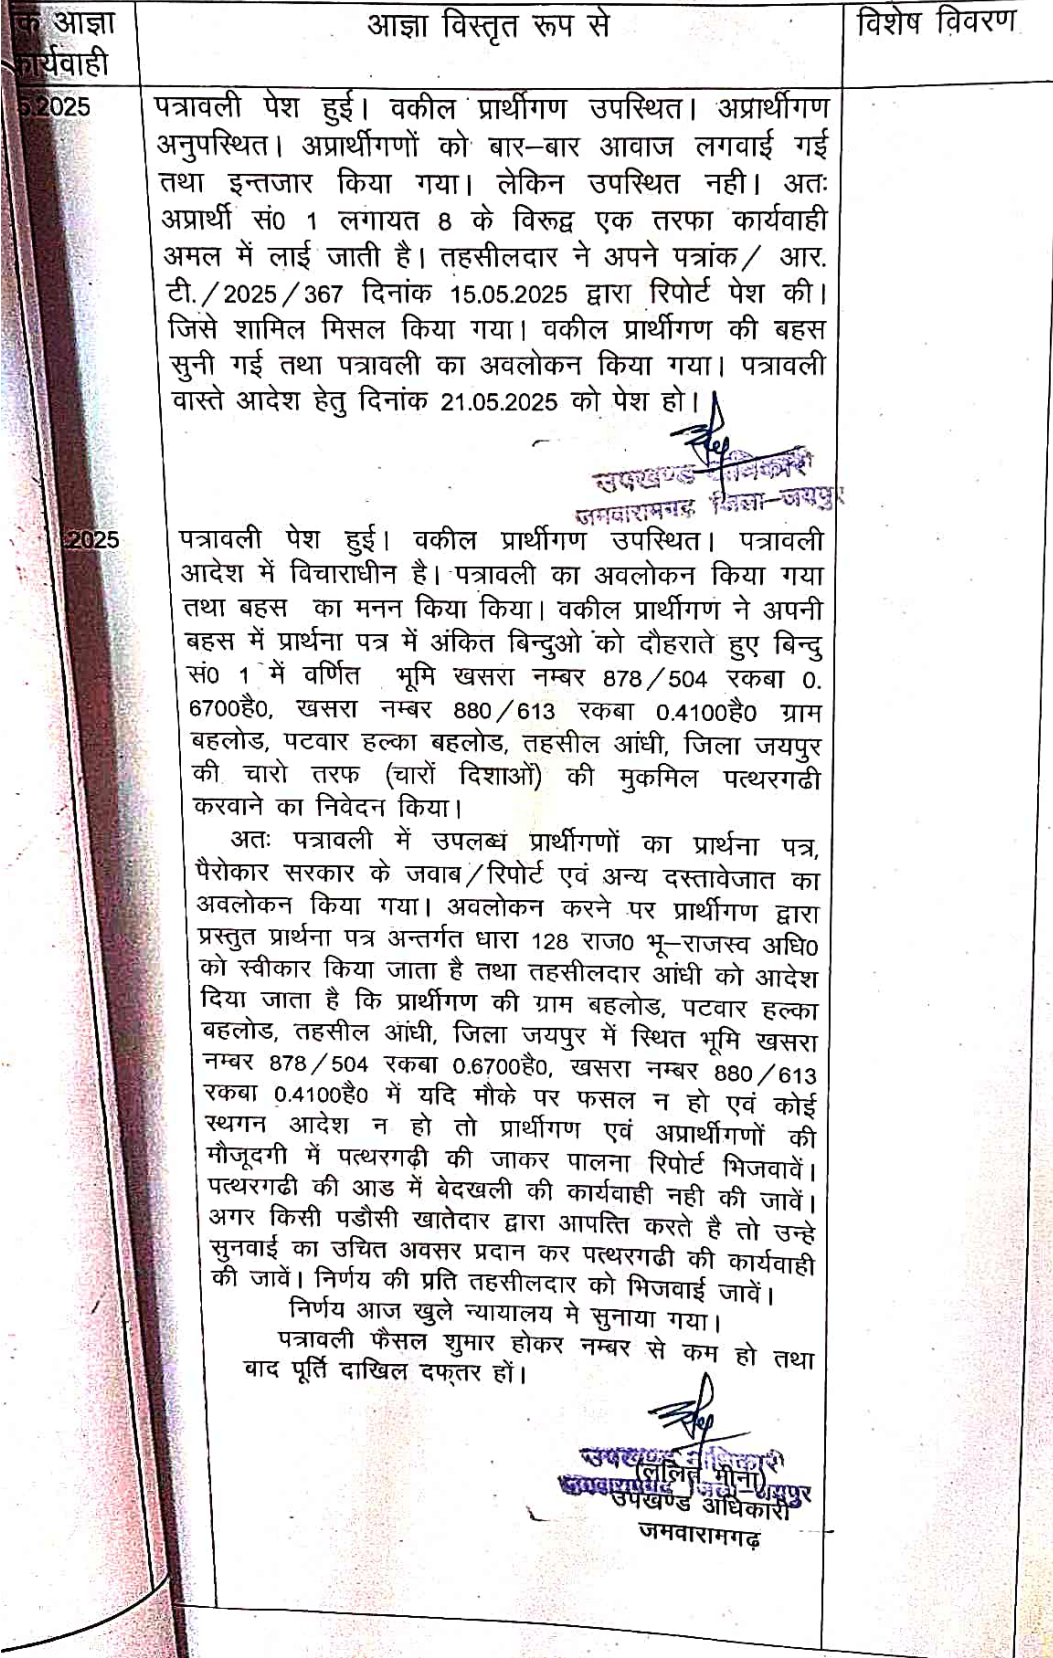 क आज्ञा
कार्यवाही
आज्ञा विस्तृत रूप से
विशेष विवरण
5.2025
पत्रावली पेश हुई। वकील प्रार्थीगण उपस्थित। अप्रार्थीगण
अनुपस्थित। अप्रार्थीगणों को बार–बार आवाज लगवाई गई
तथा इन्तजार किया गया। लेकिन उपस्थित नही। अतः
अप्रार्थी सं0 1 लगायत 8 के विरूद्व एक तरफा कार्यवाही
अमल में लाई जाती है। तहसीलदार ने अपने पत्रांक/ आर.
टी./2025/367 दिनांक 15.05.2025 द्वारा रिपोर्ट पेश की।
जिसे शामिल मिसल किया गया। वकील प्रार्थीगण की बहस
सुनी गई तथा पत्रावली का अवलोकन किया गया। पत्रावली
वास्ते आदेश हेतु दिनांक 21.05.2025 को पेश हो।
उपखण्ड अधिकारी
जमवारामगढ़ जिला–जयपुर
.2025
पत्रावली पेश हुई। वकील प्रार्थीगण उपस्थित। पत्रावली
आदेश में विचाराधीन है। पत्रावली का अवलोकन किया गया
तथा बहस का मनन किया किया। वकील प्रार्थीगण ने अपनी
बहस में प्रार्थना पत्र में अंकित बिन्दुओ को दौहराते हुए बिन्दु
सं0 1 में वर्णित भूमि खसरा नम्बर 878/504 रकबा 0.
6700है0, खसरा नम्बर 880/613 रकबा 0.4100है0 ग्राम
बहलोड, पटवार हल्का बहलोड, तहसील आंधी, जिला जयपुर
की चारो तरफ (चारों दिशाओं) की मुकमिल पत्थरगढी
करवाने का निवेदन किया।
अतः पत्रावली में उपलब्ध प्रार्थीगणों का प्रार्थना पत्र,
पैरोकार सरकार के जवाब/रिपोर्ट एवं अन्य दस्तावेजात का
अवलोकन किया गया। अवलोकन करने पर प्रार्थीगण द्वारा
प्रस्तुत प्रार्थना पत्र अन्तर्गत धारा 128 राज0 भू–राजस्व अधि0
को स्वीकार किया जाता है तथा तहसीलदार आंधी को आदेश
दिया जाता है कि प्रार्थीगण की ग्राम बहलोड, पटवार हल्का
बहलोड, तहसील आंधी, जिला जयपुर में स्थित भूमि खसरा
नम्बर 878/504 रकबा 0.6700है0, खसरा नम्बर 880/613
रकबा 0.4100है0 में यदि मौके पर फसल न हो एवं कोई
स्थगन आदेश न हो तो प्रार्थीगण एवं अप्रार्थीगणों की
मौजूदगी में पत्थरगढ़ी की जाकर पालना रिपोर्ट भिजवावें।
पत्थरगढी की आड में बेदखली की कार्यवाही नही की जावें।
अगर किसी पडौसी खातेदार द्वारा आपत्ति करते है तो उन्हे
सुनवाई का उचित अवसर प्रदान कर पत्थरगढी की कार्यवाही
की जावें। निर्णय की प्रति तहसीलदार को भिजवाई जावें।
निर्णय आज खुले न्यायालय मे सुनाया गया।
पत्रावली फैसल शुमार होकर नम्बर से कम हो तथा
बाद पूर्ति दाखिल दफ्तर हों।
उपखण्ड अधिकारी
(ललित मीना)
जमवारामगढ़ जिला–जयपुर
उपखण्ड अधिकारी
जमवारामगढ़